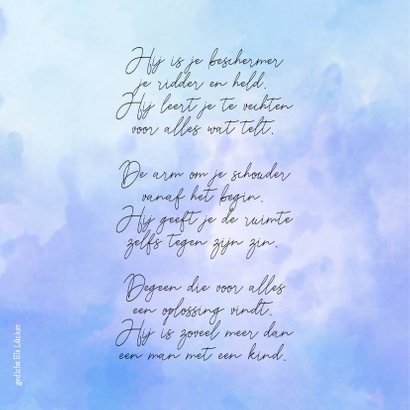 Hij is je beschermer
je ridder en held.
Hij leert je te vechten
voor alles wat telt.

De arm om je schouder
vanaf het begin.
Hij geeft je de ruimte
zelfs tegen zijn zin.

Degeen die voor alles
een oplossing vindt.
Hij is zoveel meer dan
een man met een kind.

gedicht: Elle Lücker